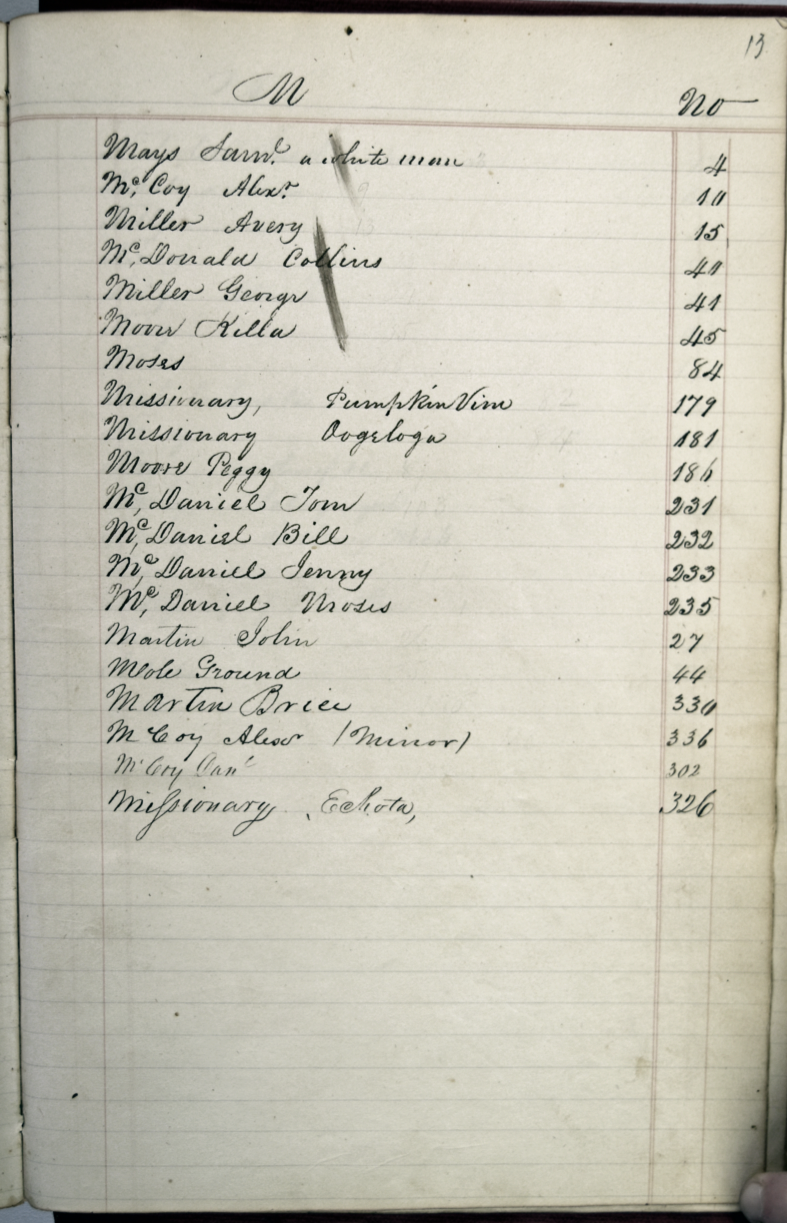 13
M No
Mays Saml. a white man 4
Mc. Coy Alexr. 10
Miller Avery 15
Mc. Donald Collins 40
Miller George 41
Moore Killa 45
Moses 84
Missionary, Pumpkin Vine 179
Missionary Oogeloga 181
Moore Peggy 186
Mc, Daniel Tom 231
Mc, Daniel Bill 232
Mc, Daniel Jenny 233
Mc, Daniel Moses 235
Martin John 27
Mole Ground 44
Martin Brice 330
McCoy Alexr (Minor) 336
McCoy Danl 302
Missionary, Echota, 326